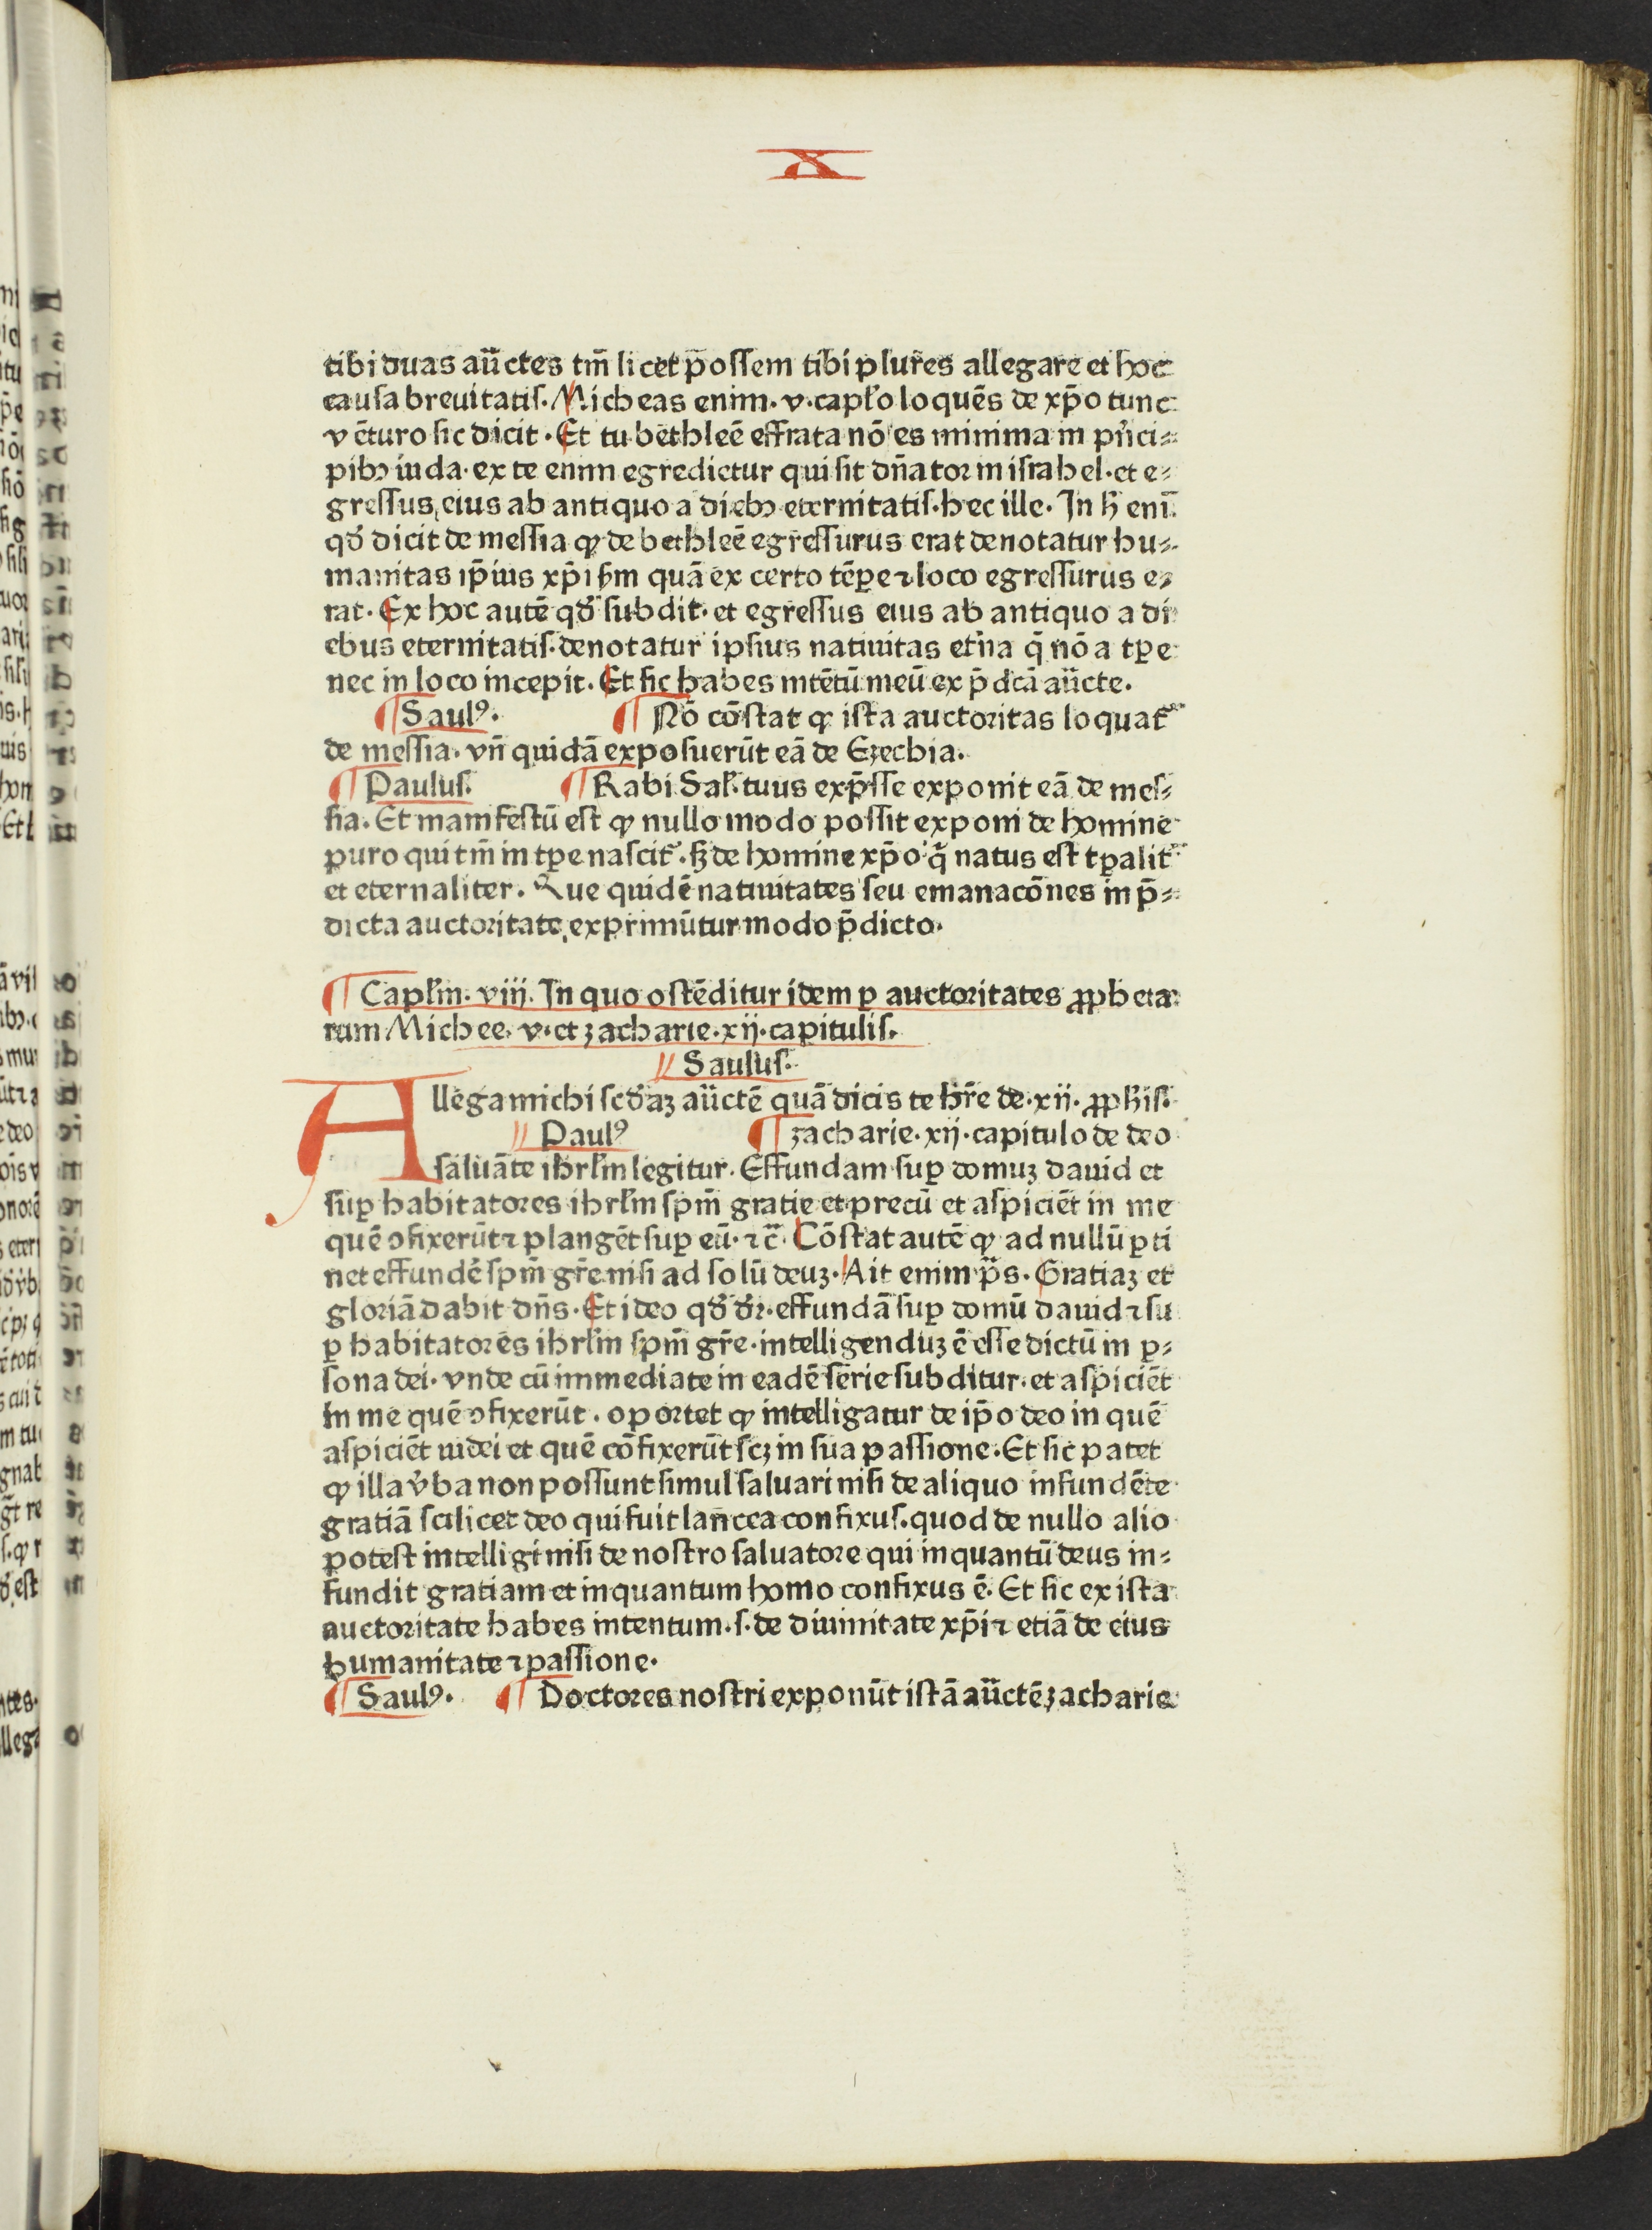 X
tibi duas aūctes tm̄ licet possem tibi plures allegare et hoc
causa breuitatis. Micheas enim. v. capło loquēs de xp̄o tunc
vēturo sic dicit. Et tu bethleē effrata nō es minima in pr̄ici⸗
pibꝫ iuda. ex te enim egredietur qui sit dn̄ator in israhel. et e⸗
gressus eius ab antiquo a diebꝫ eternitatis. hec ille. In h̄ eni
qđ dicit de messia ꝙ de bethleē egressurus erat denotatur hu⸗
manitas ip̄ius xp̄i ẜm quā ex certo tēꝑe ⁊ loco egressurus e⸗
rat. Ex hoc autē qđ subdit. et egressus eius ab antiquo a di
ebus eternitatis. denotatur ipsius natiuitas et̄na q̄ nō a tꝑe
nec in loco incepit. Et sic habes intētū meū ex p̄dcā aūcte.
¶ Saulꝰ. ¶ Nō cōstat ꝙ ista auctoritas loquat᷑
de messia. vn̄ quidā exposuerūt eā de Ezechia.
¶ Paulus. ¶ Rabi Sal. tuus exp̄sse exponit eā de mes⸗
sia. Et manifestū est ꝙ nullo modo possit exponi de homine
puro qui tm̄ in tꝑe nascit᷑. sꝫ de homine xp̄o q̄ natus est tꝑalit᷑
et eternaliter. Que quidē natiuitates seu emanacōnes in p̄⸗
dicta auctoritate exprimūtur modo p̄dicto.
¶ Caplm̄. viij. In quo ostēditur idem ꝑ auctoritates ꝓpheta
rum Michee. v. et zacharie. xij. capitulis.
Saulus.
Allega michi scđaꝫ aūctē quā dicis te hr̄e de. xij. ꝓph̄is.
Paulꝰ ¶ zacharie. xij. capitulo de deo
saluāte ihrłm legitur. Effundam suꝑ domuꝫ dauid et
suꝑ habitatores ihrłm spm̄ gratie et precū et aspiciēt in me
quē ↄfixerūt ⁊ plangēt suꝑ eū. ⁊ c̄. Cōstat autē ꝙ ad nullū ꝑti
net effundē spm̄ gr̄e nisi ad solū deuꝫ. Ait enim p̄s. Gratiaꝫ et
gloriā dabit dn̄s. Et ideo qđ dr̄. effundā suꝑ domū dauid ⁊ su
ꝑ habitatores ihrłm spm̄ gr̄e. intelligenduꝫ ē esse dictū in ꝑ⸗
sona dei. vnde cū immediate in eadē serie subditur. et aspiciēt
in me quē ↄfixerūt. oportet ꝙ intelligatur de ip̄o deo in quē
aspiciēt iudei et quē cōfixerūt scꝫ in sua passione. Et sic patet
ꝙ illa v̄ba non possunt simul saluari nisi de aliquo infundēte
gratiā scilicet deo qui fuit lan̄cea confixus. quod de nullo alio
potest intelligi nisi de nostro saluatore qui inquantū deus in⸗
fundit gratiam et inquantum homo confixus ē. Et sic ex ista
auctoritate habes intentum. s. de diuinitate xp̄i ⁊ etiā de eius
humanitate ⁊ passione.
¶ Saulꝰ. ¶ Doctores nostri exponūt istā aūctē zacharie